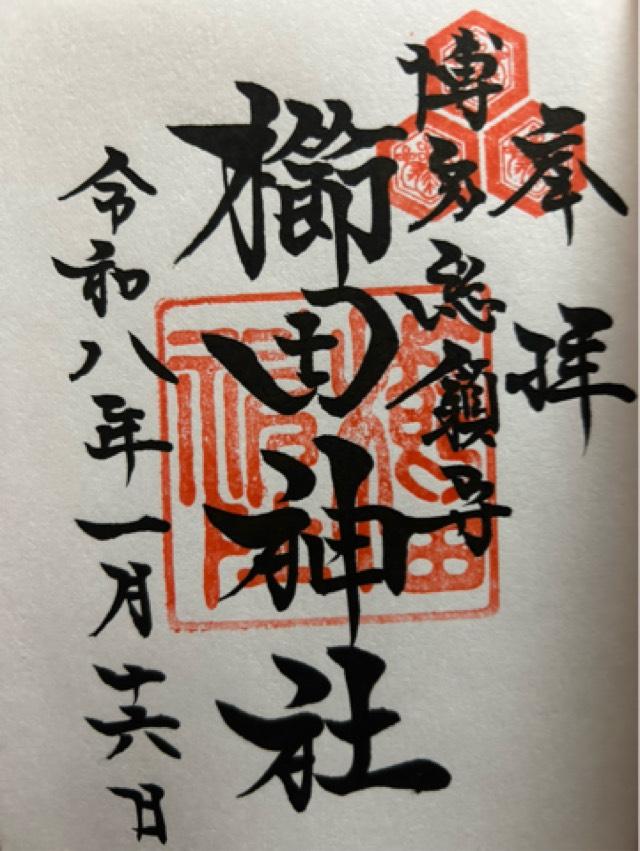 奉拝
博多総鎮守
櫛田神社
令和八年一月十六日